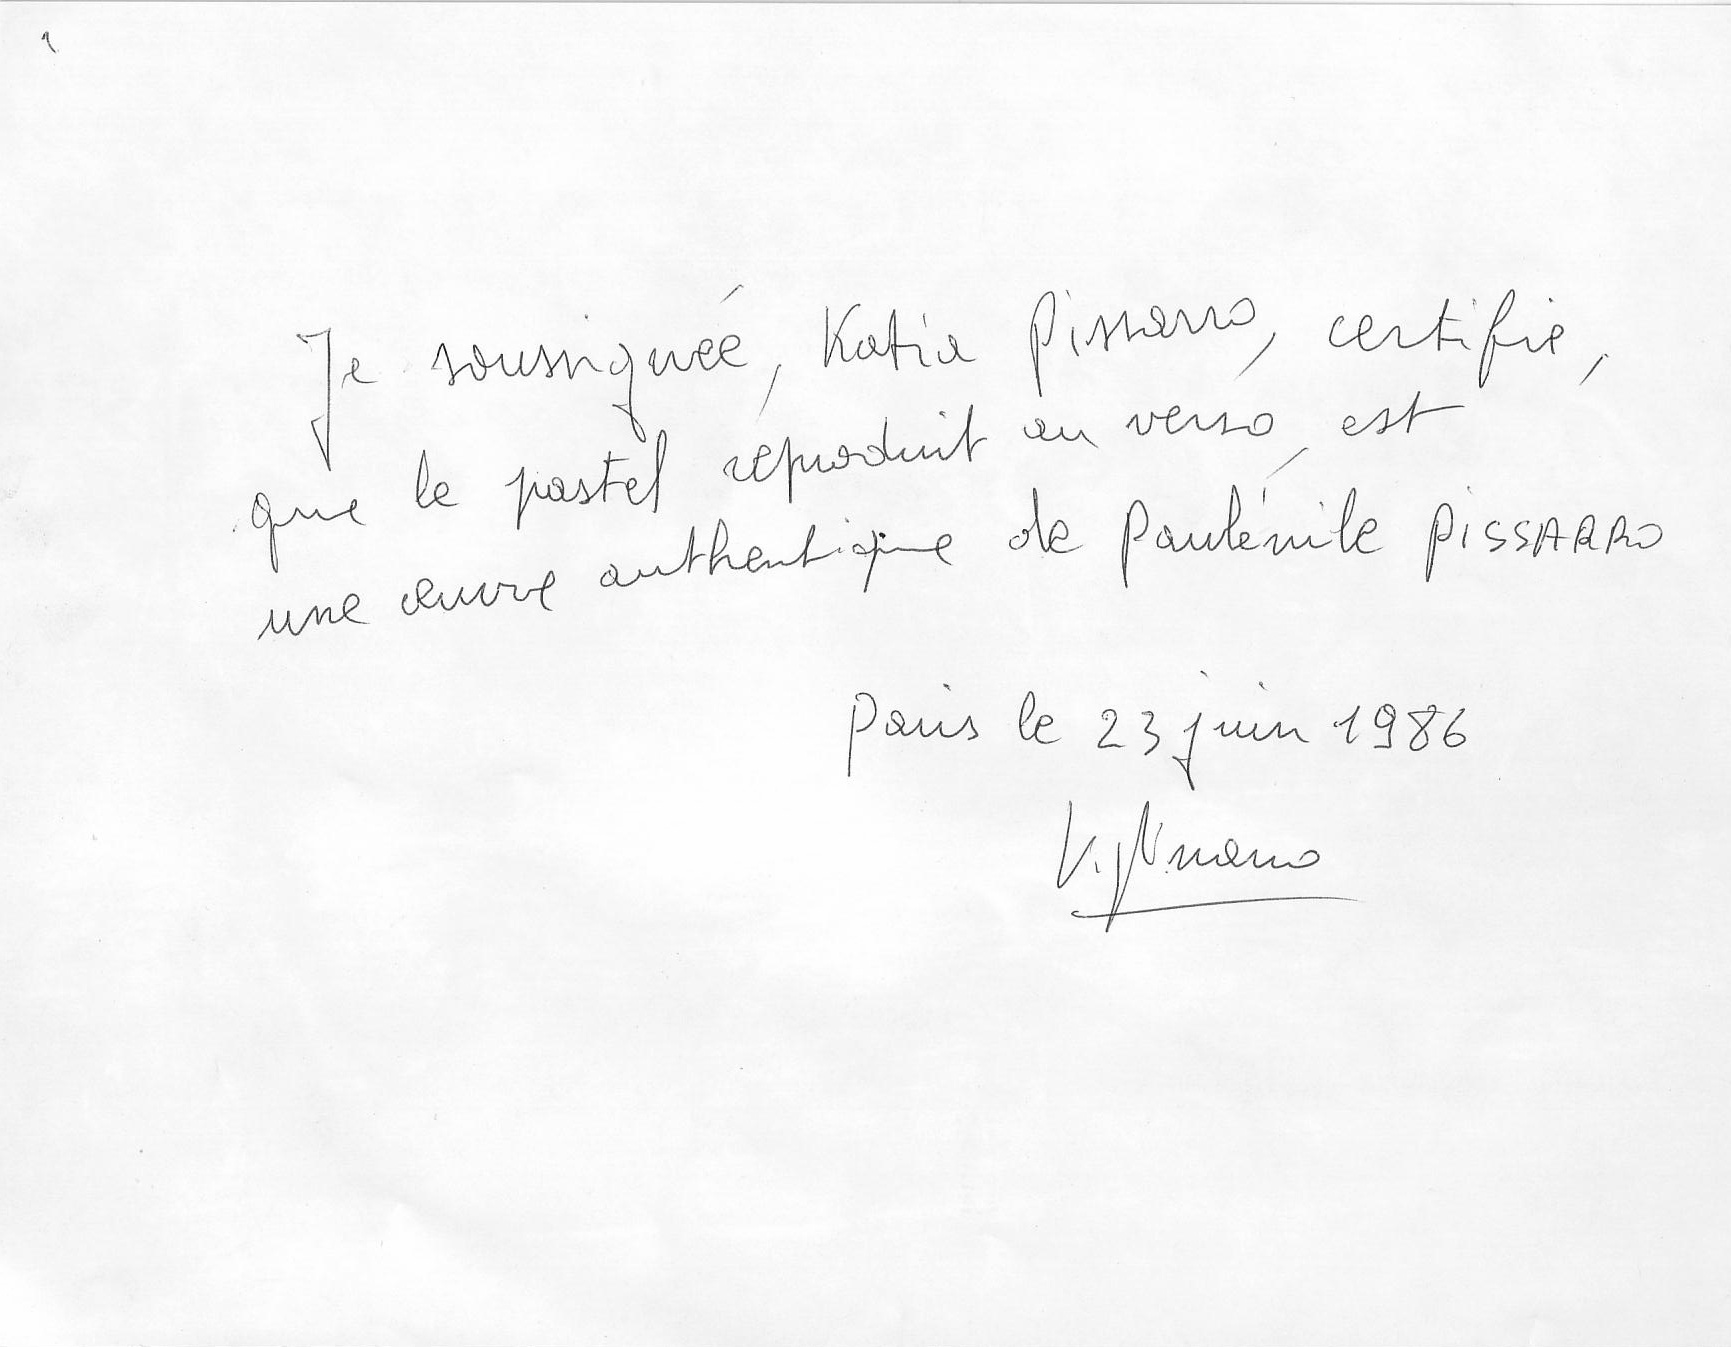 Je soussignée, Katia Pissarro, certifie,
que le pastel reproduit au verso, est
une œuvre authentique de Paulémile PISSARRO
Paris le 23 juin 1986
K. Pissarro